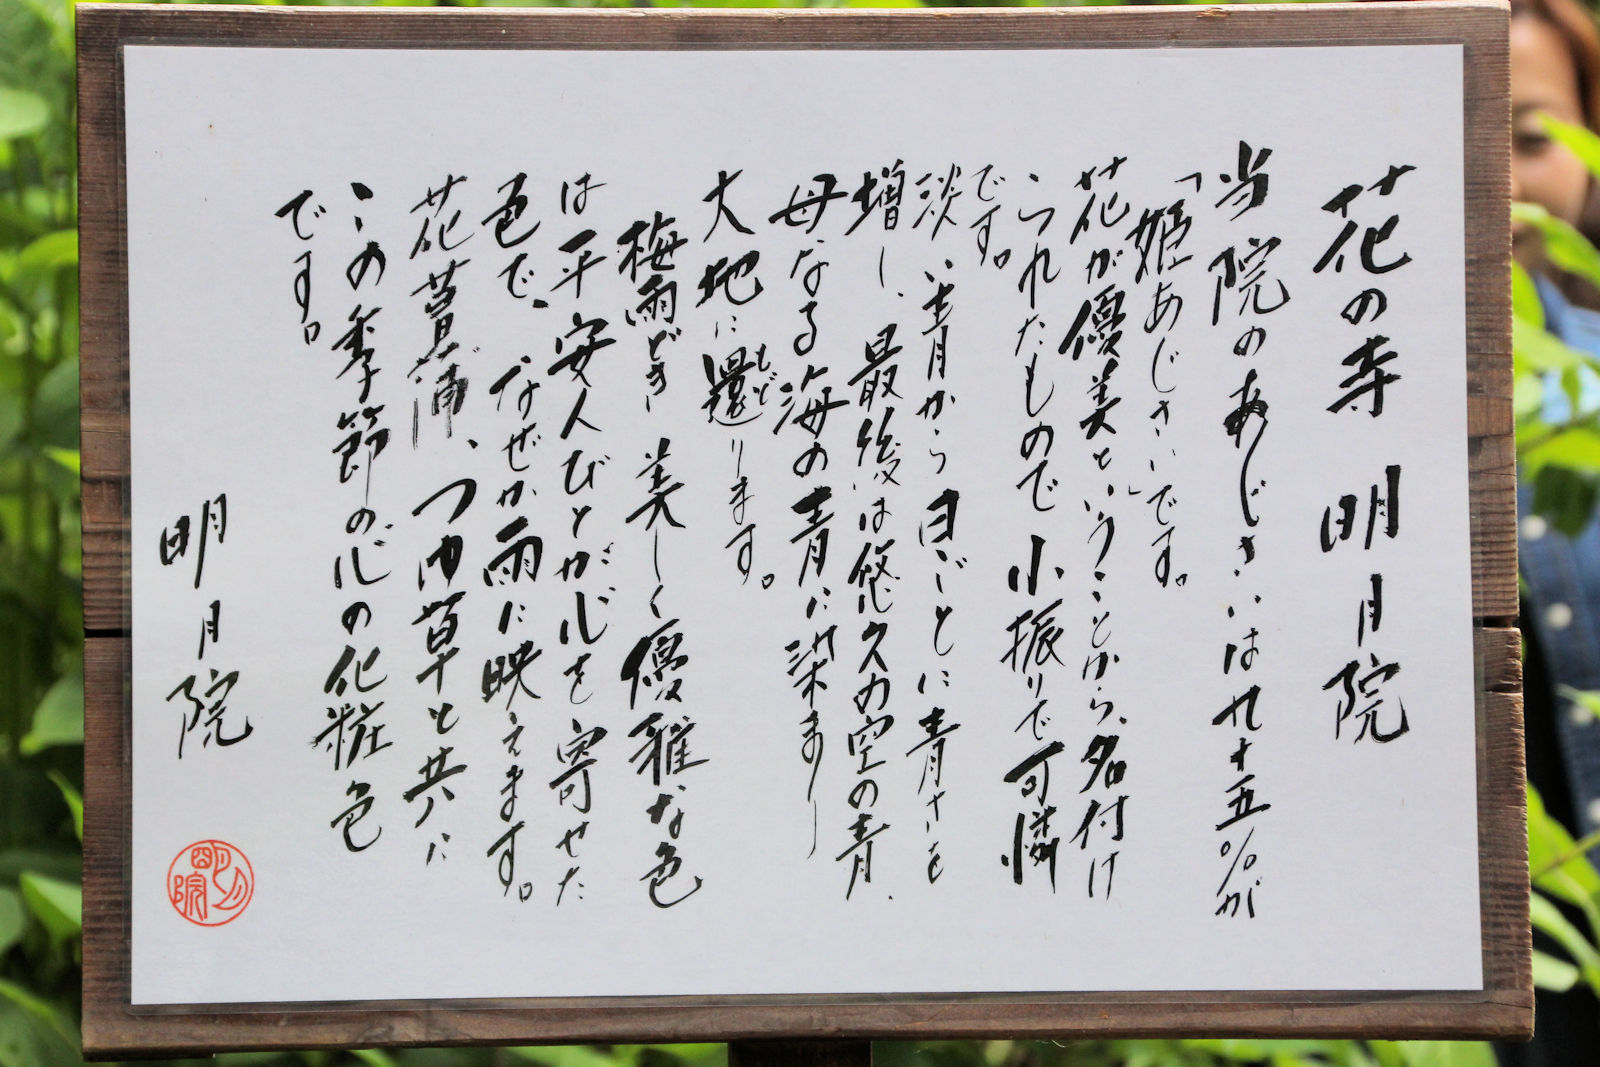 花の寺 明月院
当院のあじさいは九十五%が
「姫あじさい」です。
花が優美ということから、名付け
られたもので小振りで可憐
です。
淡い青から日ごとに青さを
増し、最後は悠久の空の青、
母なる海の青に染まり
大地に還ります。
もど
梅雨どき 美しく優雅な色
は平安人びとが心を寄せた
色で、なぜか雨に映えます。
花菖蒲、つゆ草と共に
この季節の心の化粧色
です。
明月院
明月院